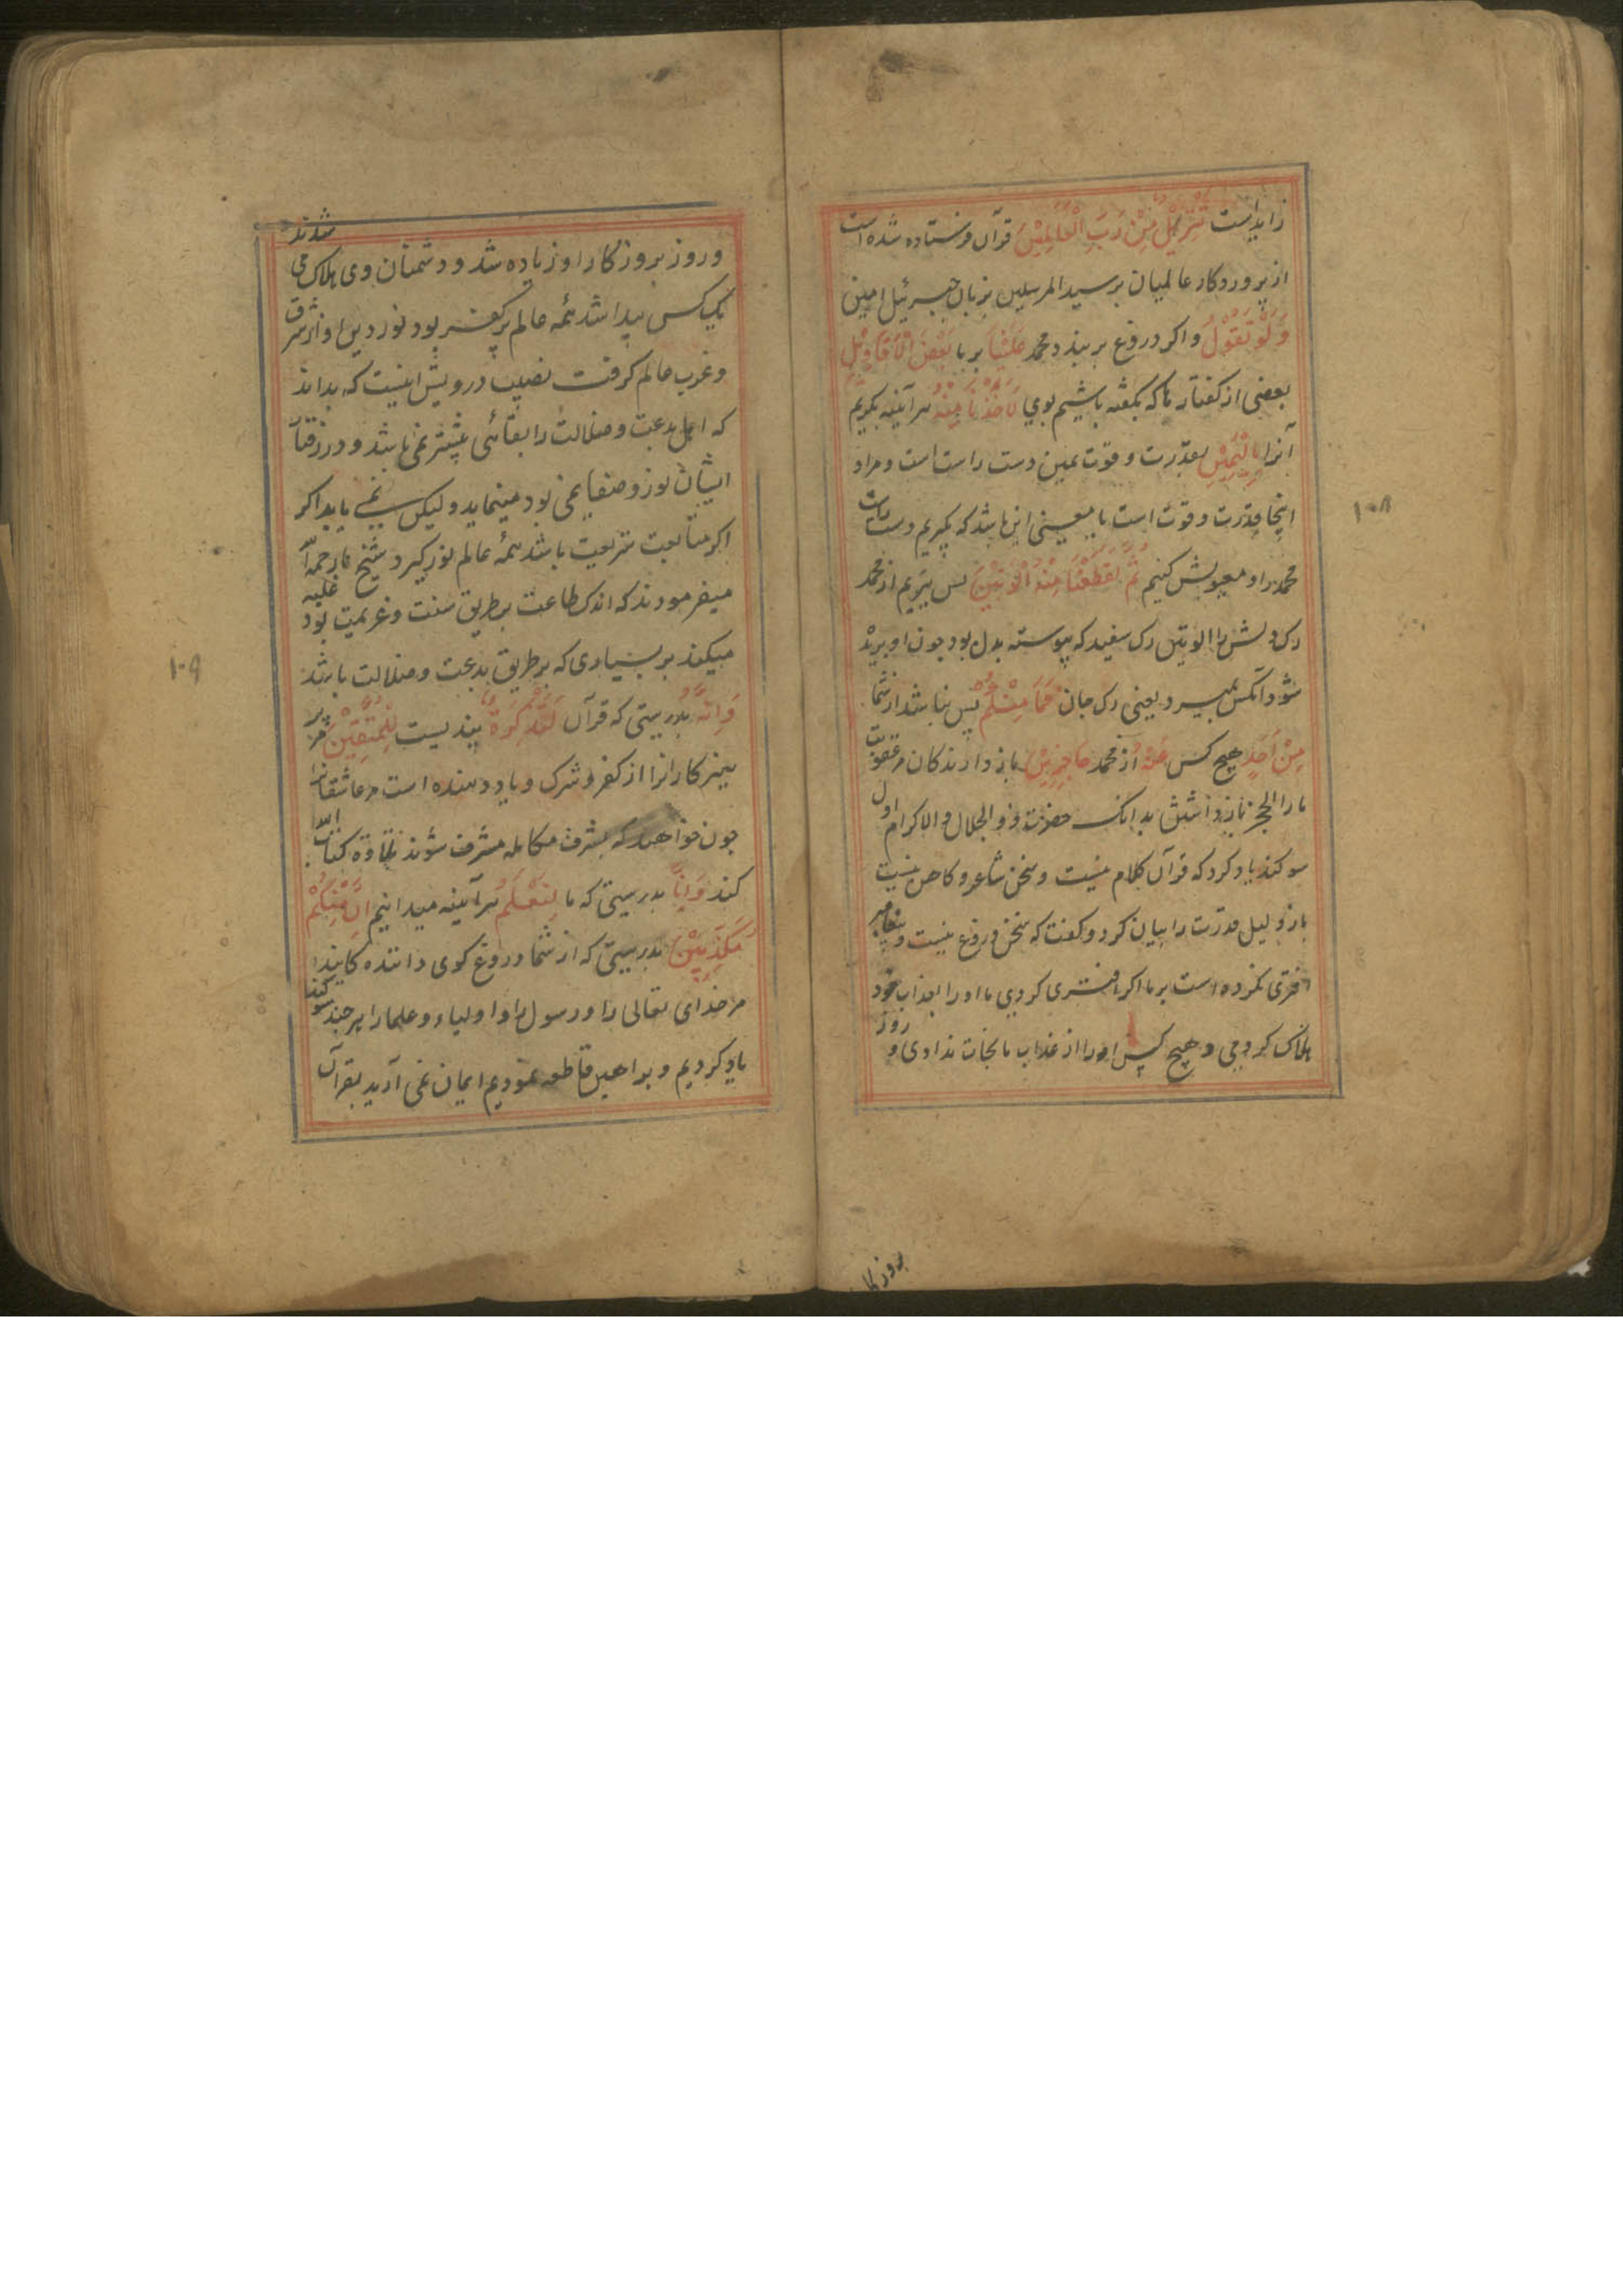 زایداست تَنْزِیلٌ مِنْ رَبِّ الْعَالَمِیْنَ قرآن فرستاده شده است
از پروردکار عالمیان بر سید المرسلین بزبان جبرئیل امین
وَلَوْ تَقَوَّلَ واکر دروغ بربندد محمد عَلَیْنَا بر ما بَعْضَ الْاَقَاوِیْلِ
بعضی از کفتارها که نکفته باشیم بوی لَاَخَذْنَا مِنْهُ هرآینه بکریم
آنرا بِالْیَمِیْنِ بقدرت و قوت یمین دست راست است و مراد
اینجا قدرت و قوت است یا معنی این باشد که بکیریم دست راست
محمد را و معیوبش کنیم ثُمَّ لَقَطَعْنَا مِنْهُ الْوَتِیْنَ پس ببریم از محمد
رک دلش را الوتین رک سفید که پیوسته بدل بود چون او بریده
شود آنکس بمیرد یعنی رک جان فَمَا مِنْکُمْ پس نباشد از شما
مِنْ اَحَدٍ هیچ کس عَنْهُ از محمد حَاجِزِیْنَ باز دارندکان مر عقوبت
ما را الحجز باز داشتن بدانک حضرت ذو الجلال والاکرام اول
سوکند یاد کرد که قرآن کلام منست و سخن شاعر و کاهن نیست
باز دلیل قدرت را بیان کرد و کفت که سخن دروغ نیست و پیغامبر
افتری نکرده است بر ما اکر افتری کردی ما او را بعذاب خود
هلاک کردمی و هیچ کس او را از عذاب ما نجات ندادی و روز
بروز کا
۱۰۸
و روز بروز کار او زیاده شد و دشمنان وی هلاک می شدند
یک کس پیدا شد همه عالم پر کفر بود نور دین او از شرق
و غرب عالم کرفت نصیب درویش اینست که بداند
که اهل بدعت و ضلالت را بقائی بیشتر نمی باشد و در زقت
ایشان نور و صفا نمی بود مینماید ولیکن نمی یابد اکر
اکر متابعت شریعت باشد همه عالم نور کیرد شیخ ما رحمة الله علیه
میفرمودند که اندک طاعت بر طریق سنت و عزیمت بود
میکند بر بسیاری که بر طریق بدعت و ضلالت باشد
وَاِنَّهُ بدرستی که قرآن لَتَذْکِرَةٌ پندیست لِلْمُتَّقِیْنَ مر پر
هیزکارانرا از کفر و شرک و یاد دهنده است مر عاشقانرا
چون خواهند که بشرف مکالمه مشرف شوند تلاوة کتاب الله
کنند وَاِنَّا بدرستی که ما لَنَعْلَمُ هرآینه میدانیم اَنَّ مِنْکُمْ
مُکَذِّبِیْنَ بدرستی که از شما دروغ کوی دانندکانیدا
مر خدای تعالی را و رسول را و اولیاء و علما را هر چند سوکند
یاد کردیم و براهین قاطعه نمودیم ایمان نمی آرید بقرآن
۱۰۹